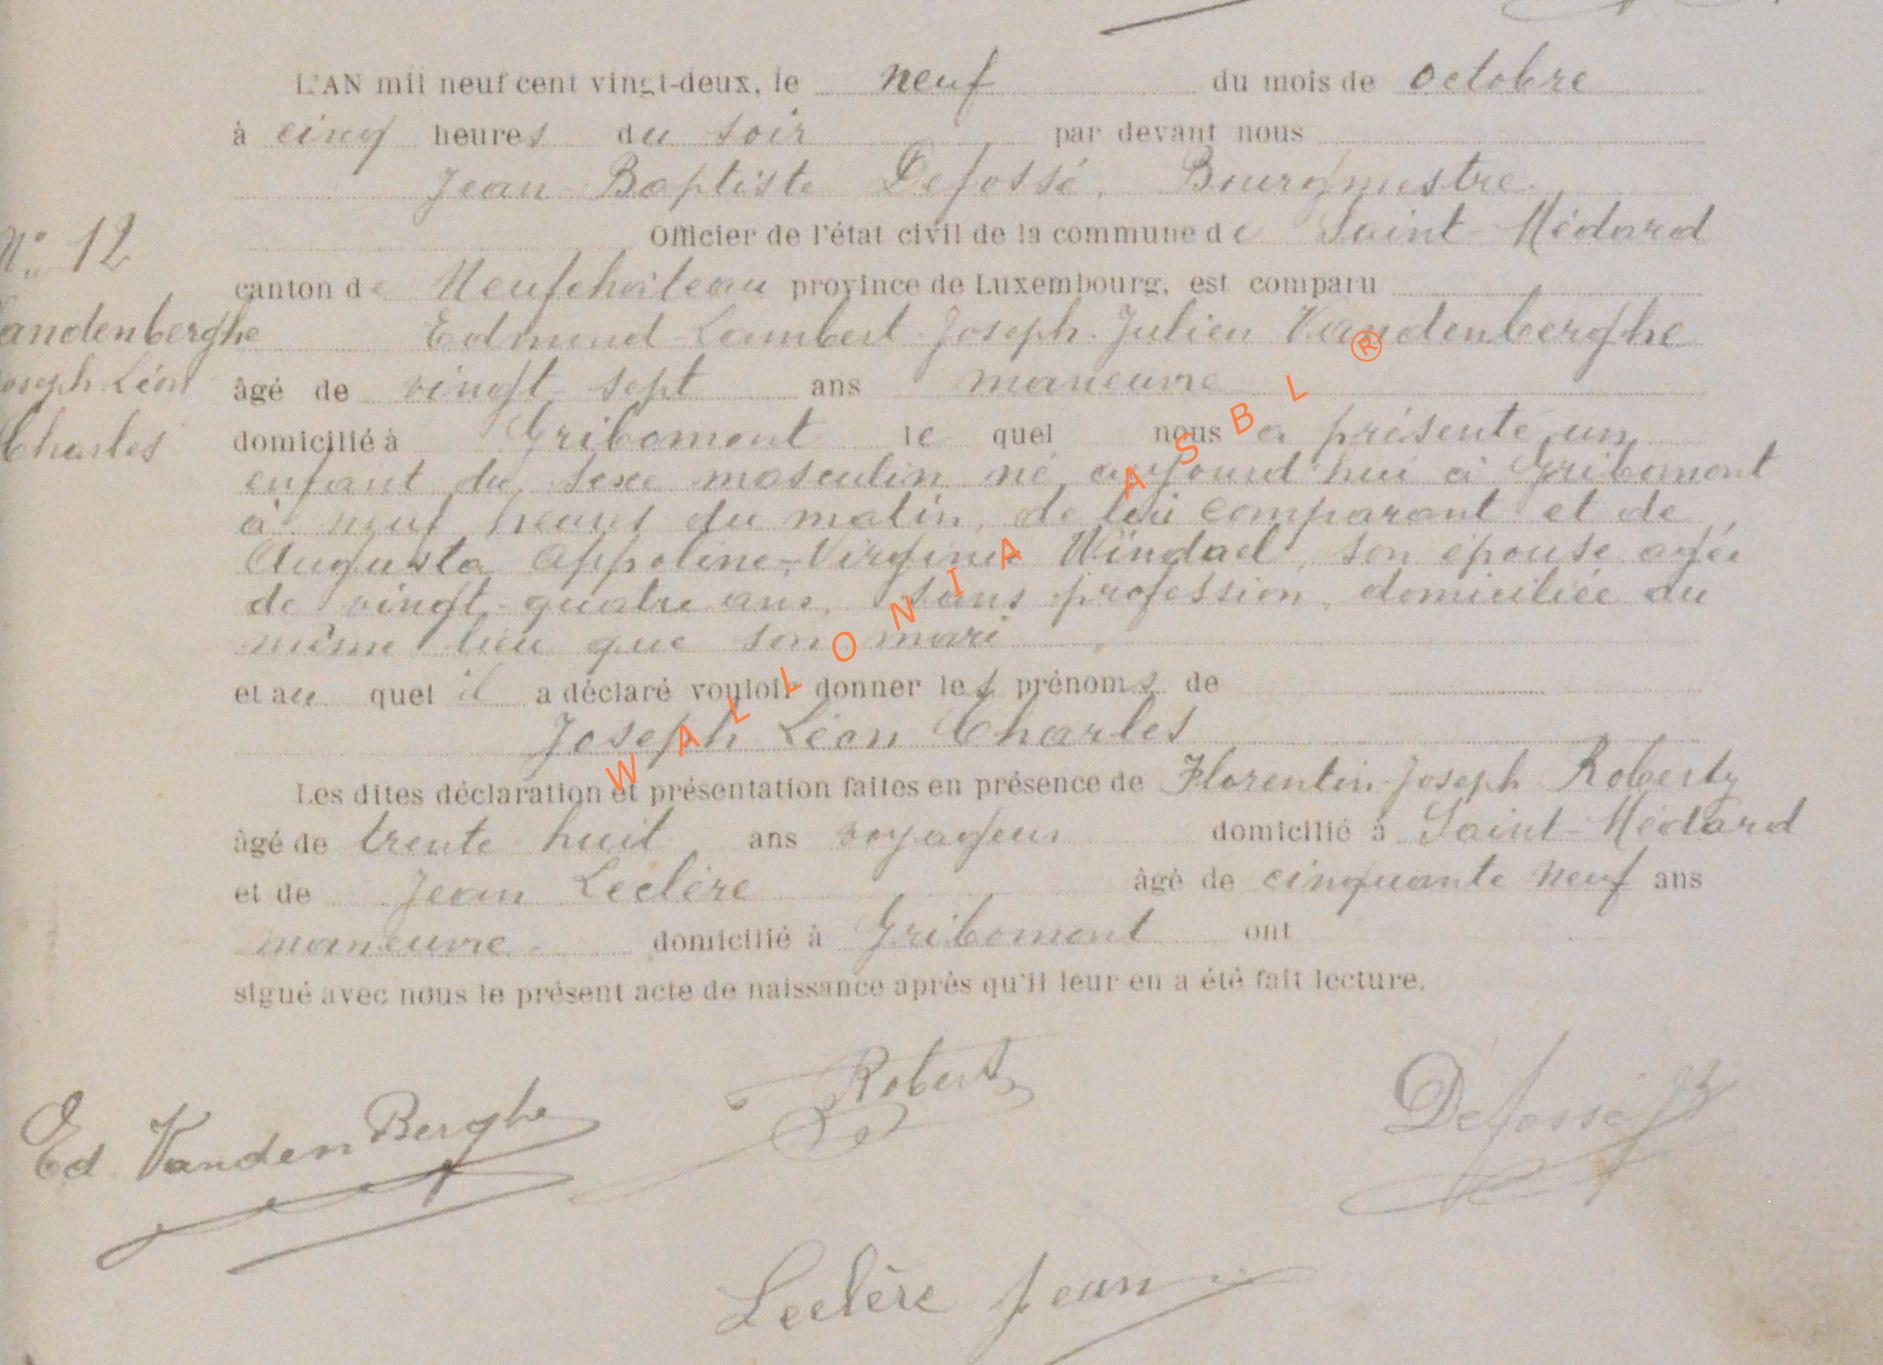 L'AN mil neuf cent vingt-deux, le neuf du mois de octobre
à cinq heures du soir par devant nous
Jean-Baptiste Defossé, Bourgmestre
Officier de l'état civil de la commune de Saint-Médard
N° 12
canton de Neufchâteau province de Luxembourg, est comparu
Vandenberghe
Edmond-Lambert-Joseph-Julien Vandenberghe
Joseph Léon
âgé de vingt-sept ans manœuvre
Charles
domicilié à Gribomont lequel nous a présenté un
enfant du sexe masculin né aujourd'hui à Gribomont
à neuf heures du matin, de lui comparant et de
Augusta Appoline-Virginie Windael, son épouse agée
de vingt-quatre ans, sans profession, domiciliée au
même lieu que son mari
et au quel il a déclaré vouloir donner les prénoms de
Joseph Léon Charles
Les dites déclaration et présentation faites en présence de Florentin-Joseph Roberty
âgé de trente huit ans voyageur domicilié à Saint-Médard
et de Jean Leclère âgé de cinquante neuf ans
manœuvre domicilié à Gribomont ont
signé avec nous le présent acte de naissance après qu'il leur en a été fait lecture.
Ed. VandenBerghe
Roberty
Defossé JB
Leclère Jean
WALLONIA ASBL ®